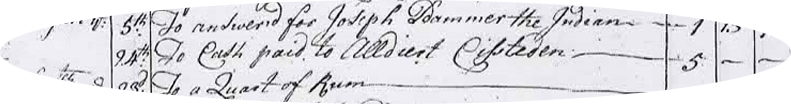 5th To answerd for Joseph Dammer the Indian — 1 13
24th To Cash paid to Alldiert Cisteden — 5 — —
23d To a Quart of Rum